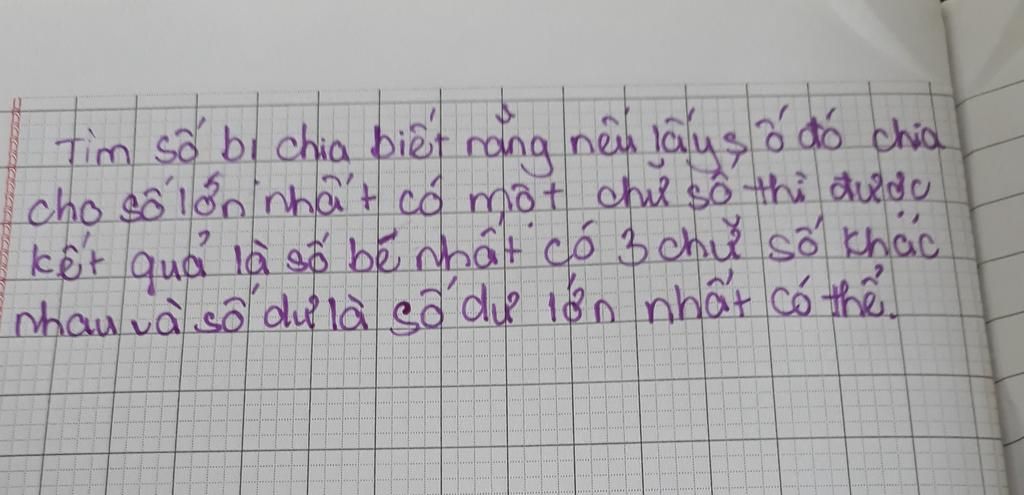 Tìm số bị chia biết rằng nếu lấy số đó chia
cho số lớn nhất có một chữ số thì được
kết quả là số bé nhất có 3 chữ số khác
nhau và số dư là số dư lớn nhất có thể.